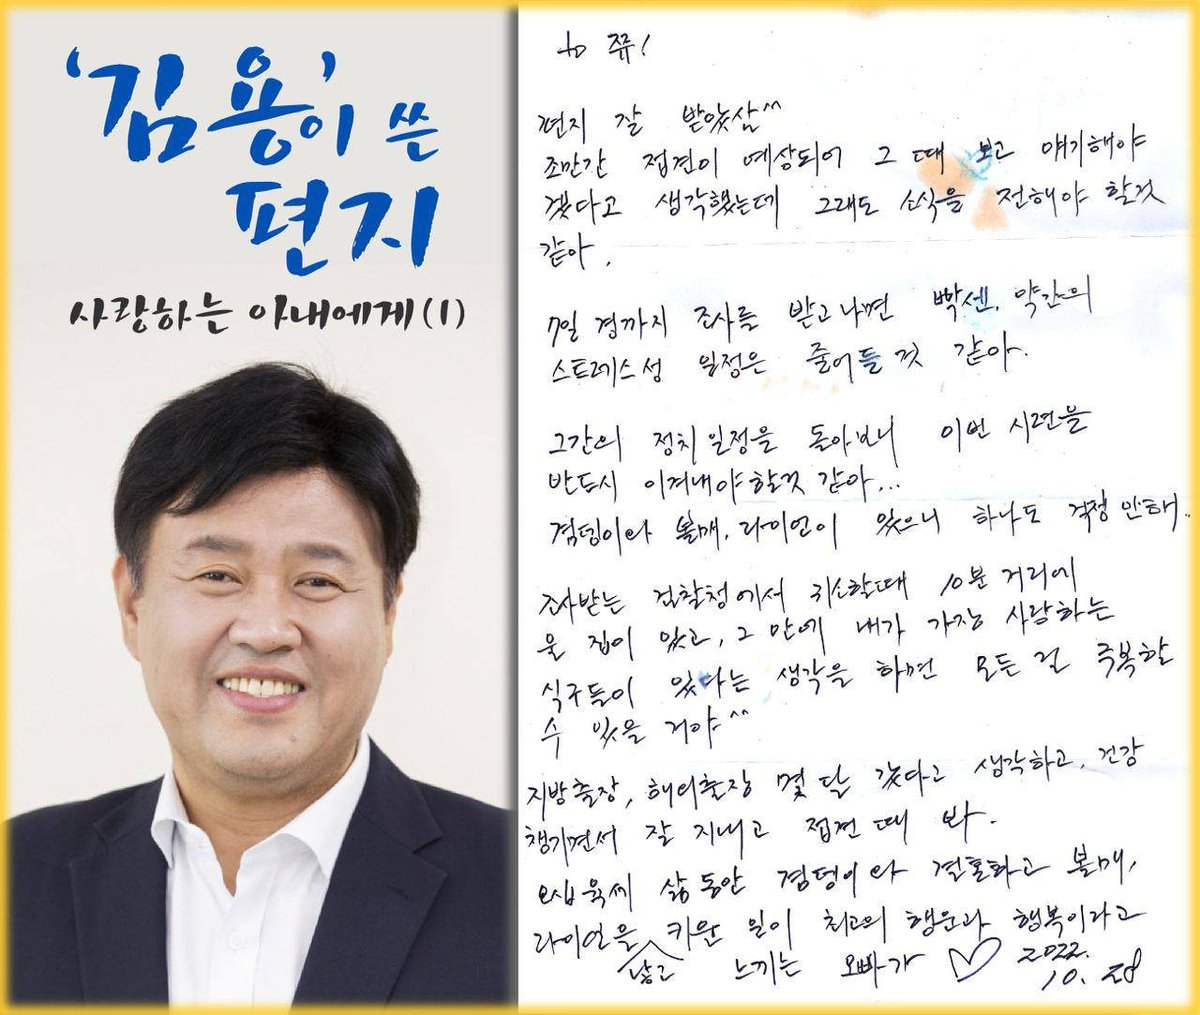 '김용'이 쓴
편지
사랑하는 아내에게(1)
to 쮸!
편지 잘 받았삼^^
조만간 접견이 예상되어 그 때 보고 얘기해야
겠다고 생각했는데 그래도 소식을 전해야 할것
같아.
7일 경까지 조사를 받고나면 빡센, 약간의
스트레스성 일정은 줄어들 것 같아.
그간의 정치일정을 돌아보니 이번 시련을
반드시 이겨내야할것 같아...
껌덩이와 볼매, 라이언이 있으니 하나도 걱정 안해..
조사받는 검찰청에서 귀소할때 10분 거리에
울 집이 있고, 그 안에 내가 가장 사랑하는
식구들이 있다는 생각을 하면 모든 걸 극복할
수 있을 거야^^
지방출장, 해외출장 몇 달 갔다고 생각하고, 건강
챙기면서 잘 지내고 접견 때 봐.
오십 육세 삶 동안 껌덩이와 결혼하고 볼매,
라이언을 낳고 키운 일이 최고의 행운과 행복이라고
느끼는 오빠가 ♡ 2022.
10. 28